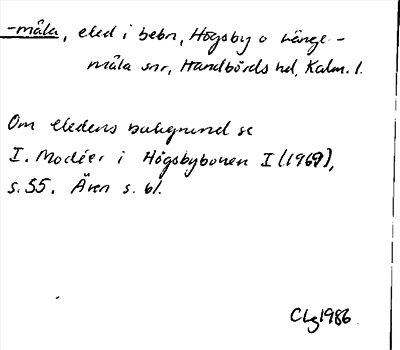 -måla, eled i bebn, Högsby o Långe-
måla snr, Handbörds hd, Kalm. l.
Om eledens bakgrund se
I. Modéer i Högsbyboken I (1969),
s. 55. Även s. 61.
CLg 1986